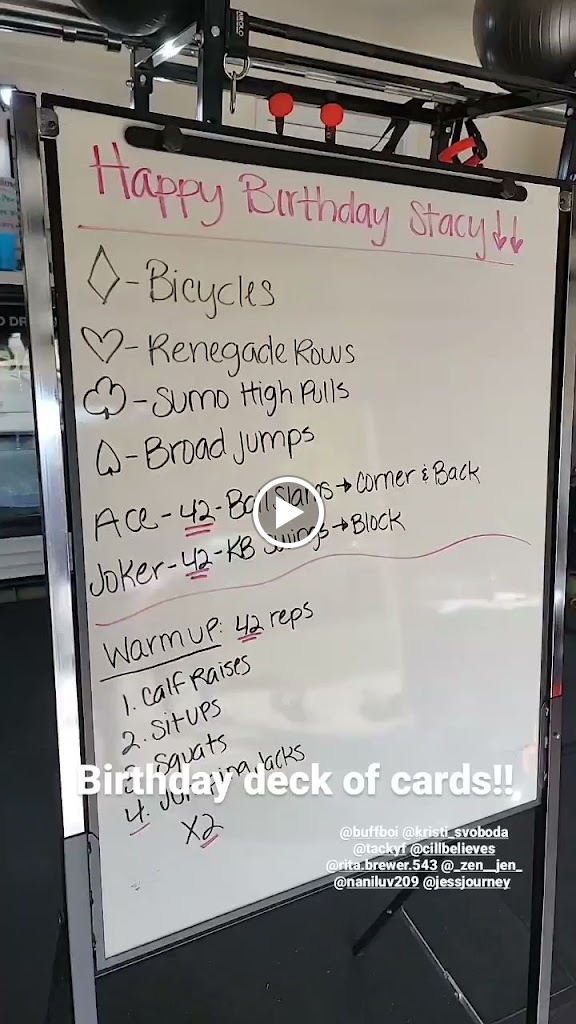 Happy Birthday Stacy↓↓
◇-Bicycles
♡-Renegade Rows
♧-Sumo High Pulls
♤-Broad Jumps
Ace-42-Ball Slams→Corner & Back
Joker-42-KB Swings→Block
Warmup: 42 reps
1. Calf Raises
2. Situps
3. Squats
4. Jumping Jacks
X2
Birthday deck of cards!!
@buffboi @kristi_svoboda
@tackyf @cillbelieves
@rita.brewer.543 @_zen__jen_
@naniluv209 @jessjourney